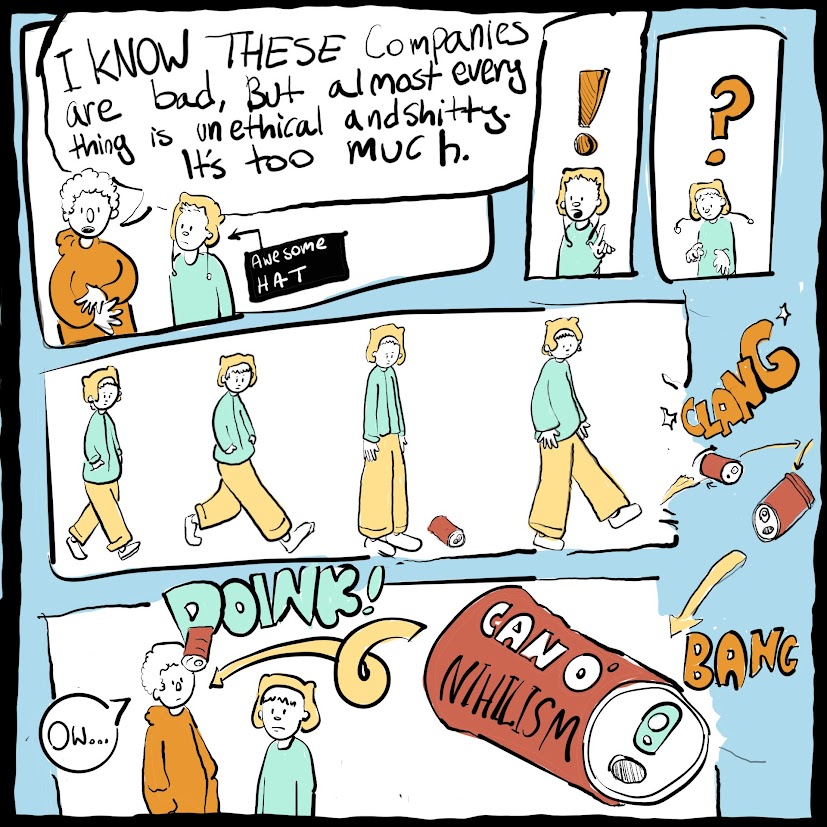 I KNOW THESE Companies
are bad, But almost every
thing is unethical and shitty.
It's too MUCH.
AWESOME
HAT
!
?
CLANG
BANG
DOINK!
OW...
CAN O'
NIHILISM